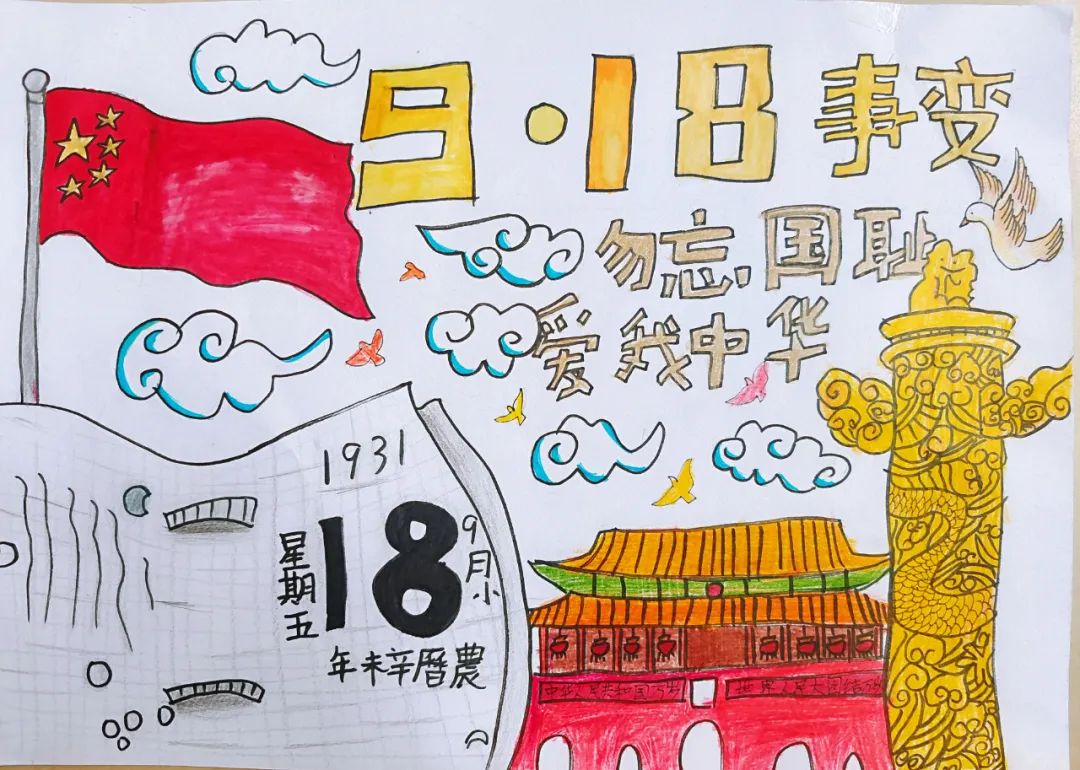 9·18 事变
勿忘国耻
爱我中华
1931
9月小
18
星期五
農曆辛未年
中华人民共和国万岁
世界人民大团结万岁